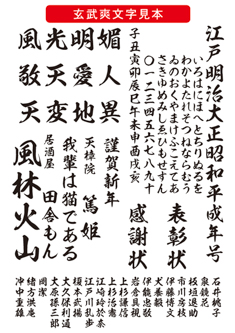 玄武爽文字見本
江戸明治大正昭和平成年号
いろはにほへとちりぬるを
わかよたれそつねならむう
ゐのおくやまけふこえてあ
さきゆめみしゑひもせすん
〇一二三四五六七八九十
子丑寅卯辰巳午未申酉戌亥
媚人異
明愛地
光天変
風敬天
表彰状
感謝状
謹賀新年
天璋院 篤姫
我輩は猫である
居酒屋 田舎もん
風林火山
石井桃子
板垣退助
泉鏡花
市川房枝
伊藤博文
犬養毅
伊能忠敬
岩倉具視
上杉謙信
上杉治憲
江崎玲於奈
江戸川乱歩
榎本武揚
大久保利通
大原孫三郎
岡潔
緒方洪庵
沖中重雄